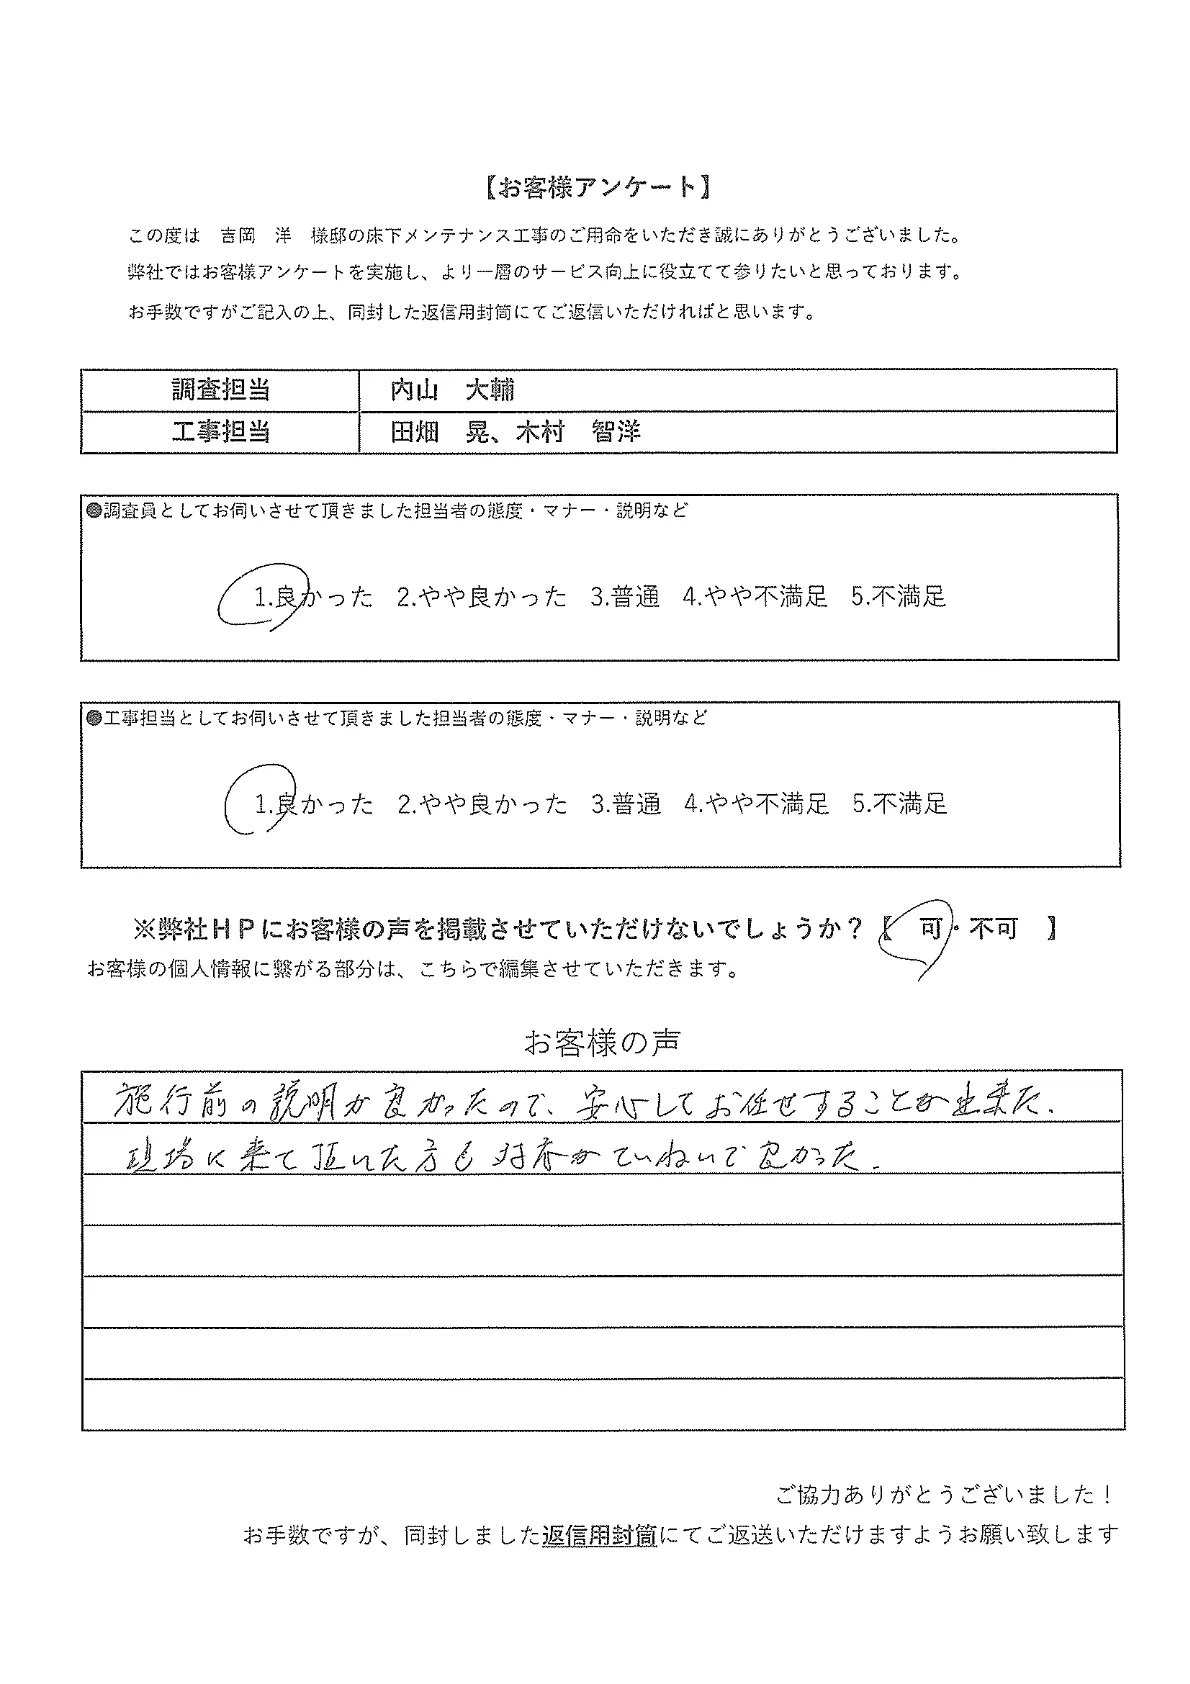 【お客様アンケート】
この度は　吉岡　洋　様邸の床下メンテナンス工事のご用命をいただき誠にありがとうございました。
弊社ではお客様アンケートを実施し、より一層のサービス向上に役立てて参りたいと思っております。
お手数ですがご記入の上、同封した返信用封筒にてご返信いただければと思います。
調査担当　内山　大輔
工事担当　田畑　晃、木村　智洋
●調査員としてお伺いさせて頂きました担当者の態度・マナー・説明など
1.良かった　2.やや良かった　3.普通　4.やや不満足　5.不満足
●工事担当としてお伺いさせて頂きました担当者の態度・マナー・説明など
1.良かった　2.やや良かった　3.普通　4.やや不満足　5.不満足
※弊社ＨＰにお客様の声を掲載させていただけないでしょうか？【　可・不可　】
お客様の個人情報に繋がる部分は、こちらで編集させていただきます。
お客様の声
施行前の説明が良かったので、安心してお任せすることが出来た.
現場に来て頂いた方も対応がていねいで良かった.
ご協力ありがとうございました！
お手数ですが、同封しました返信用封筒にてご返送いただけますようお願い致します